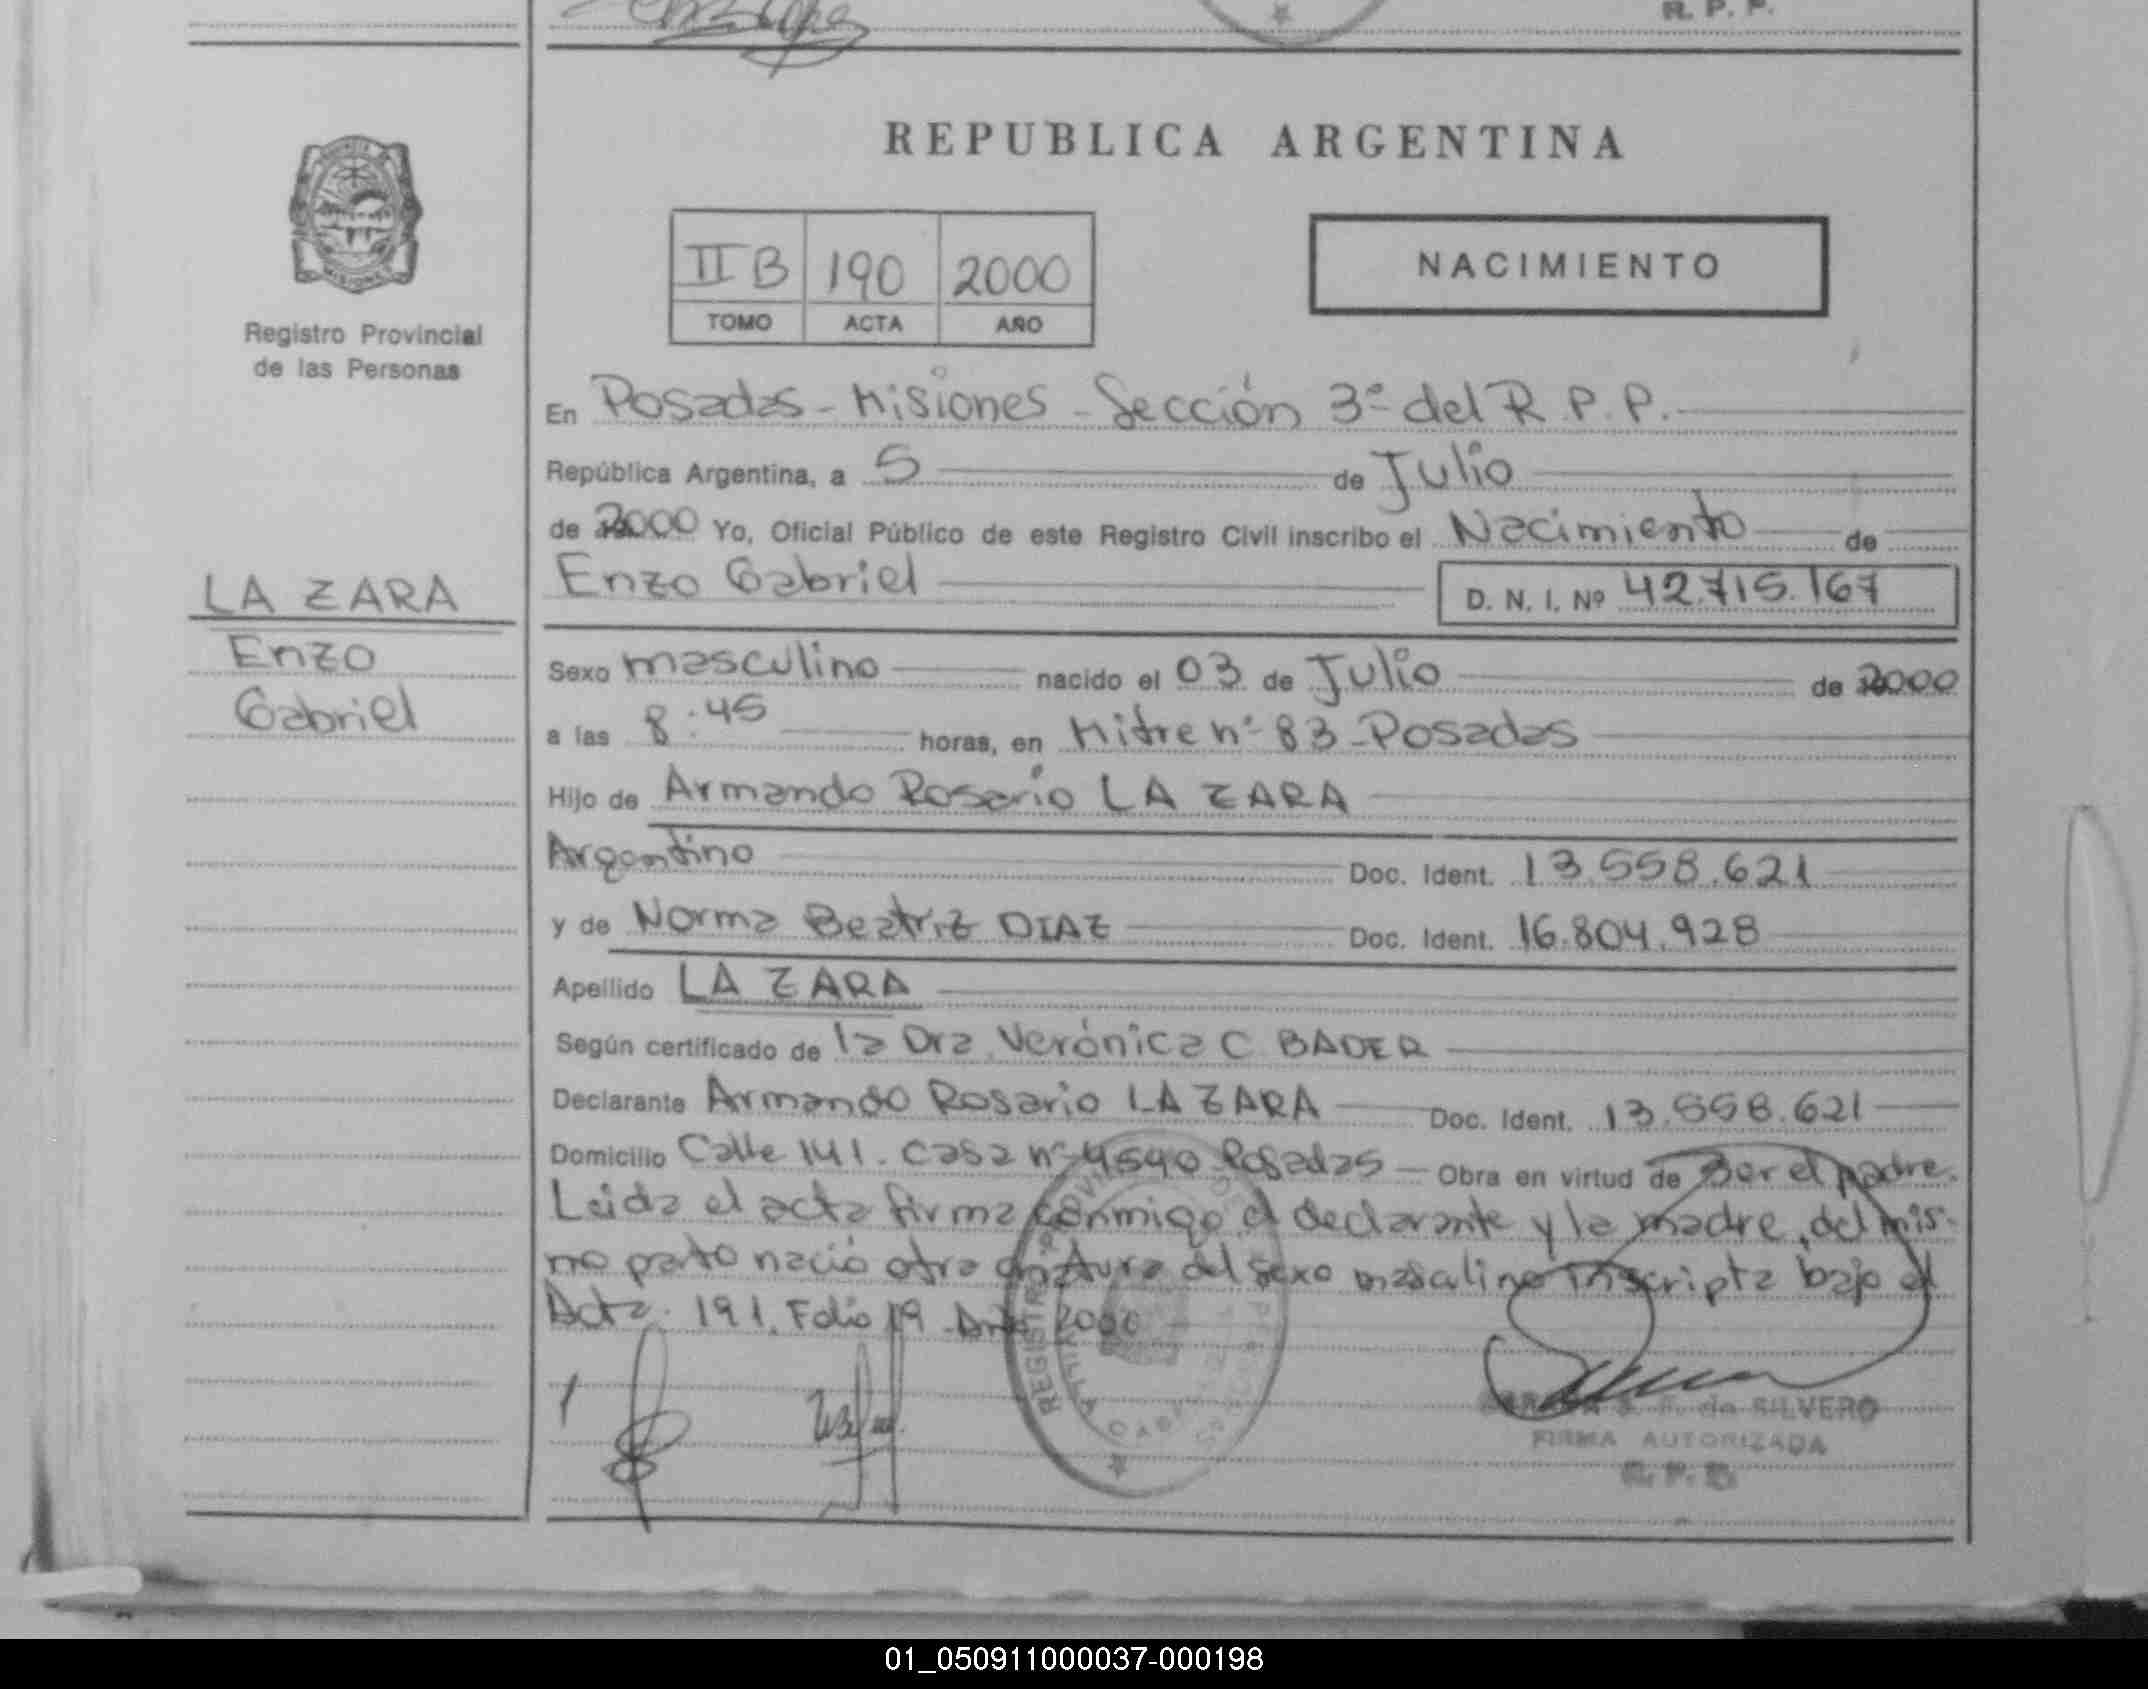 R. P. P.
REPUBLICA ARGENTINA
II B 190 2000
TOMO ACTA AÑO
NACIMIENTO
Registro Provincial
de las Personas
En Posadas - Misiones - Sección 3º del R. P. P.
República Argentina, a 5 de Julio
de 2000 Yo, Oficial Público de este Registro Civil inscribo el Nacimiento de
Enzo Gabriel D. N. I. Nº 42.715.167
LA ZARA
Enzo
Gabriel
Sexo masculino nacido el 03 de Julio de 2000
a las 8:45 horas, en Mitre nº 83 - Posadas
Hijo de Armando Rosario LA ZARA
Argentino Doc. Ident. 13.558.621
y de Norma Beatriz DIAZ Doc. Ident. 16.804.928
Apellido LA ZARA
Según certificado de la Dra. Verónica C BADER
Declarante Armando Rosario LA ZARA Doc. Ident. 13.558.621
Domicilio Calle 141. Casa nº 4540 Posadas Obra en virtud de Ser el padre.
Leida el acta firma conmigo el declarante y la madre, del mis-
mo parto nació otra criatura del sexo masculino inscripta bajo el
Acta. 191. Folio 19. Año 2000
de SILVERO
FIRMA AUTORIZADA
01_050911000037-000198